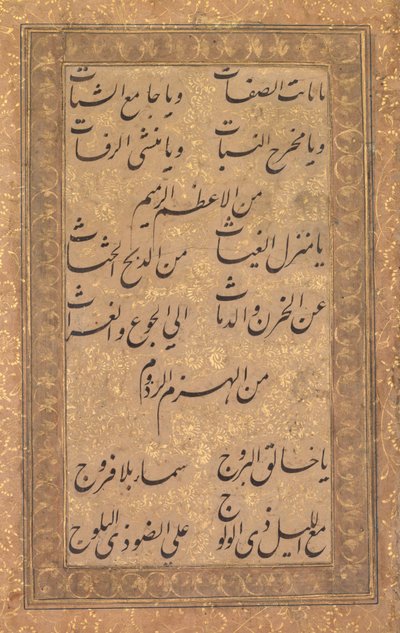 يا ثابت الصفات ويا جامع الشتات
ويا مخرج النبات ويا منشي الرفات
من الاعظم الرميم
يا منزل الغياث من الدبح الحثاث
عن الخرن والدماث الي الجوع والغراث
من الهزم الرذوم
يا خالق البروج سماء بلا فروج
مع الليل ذي الولوج علي الضو ذي البلوج